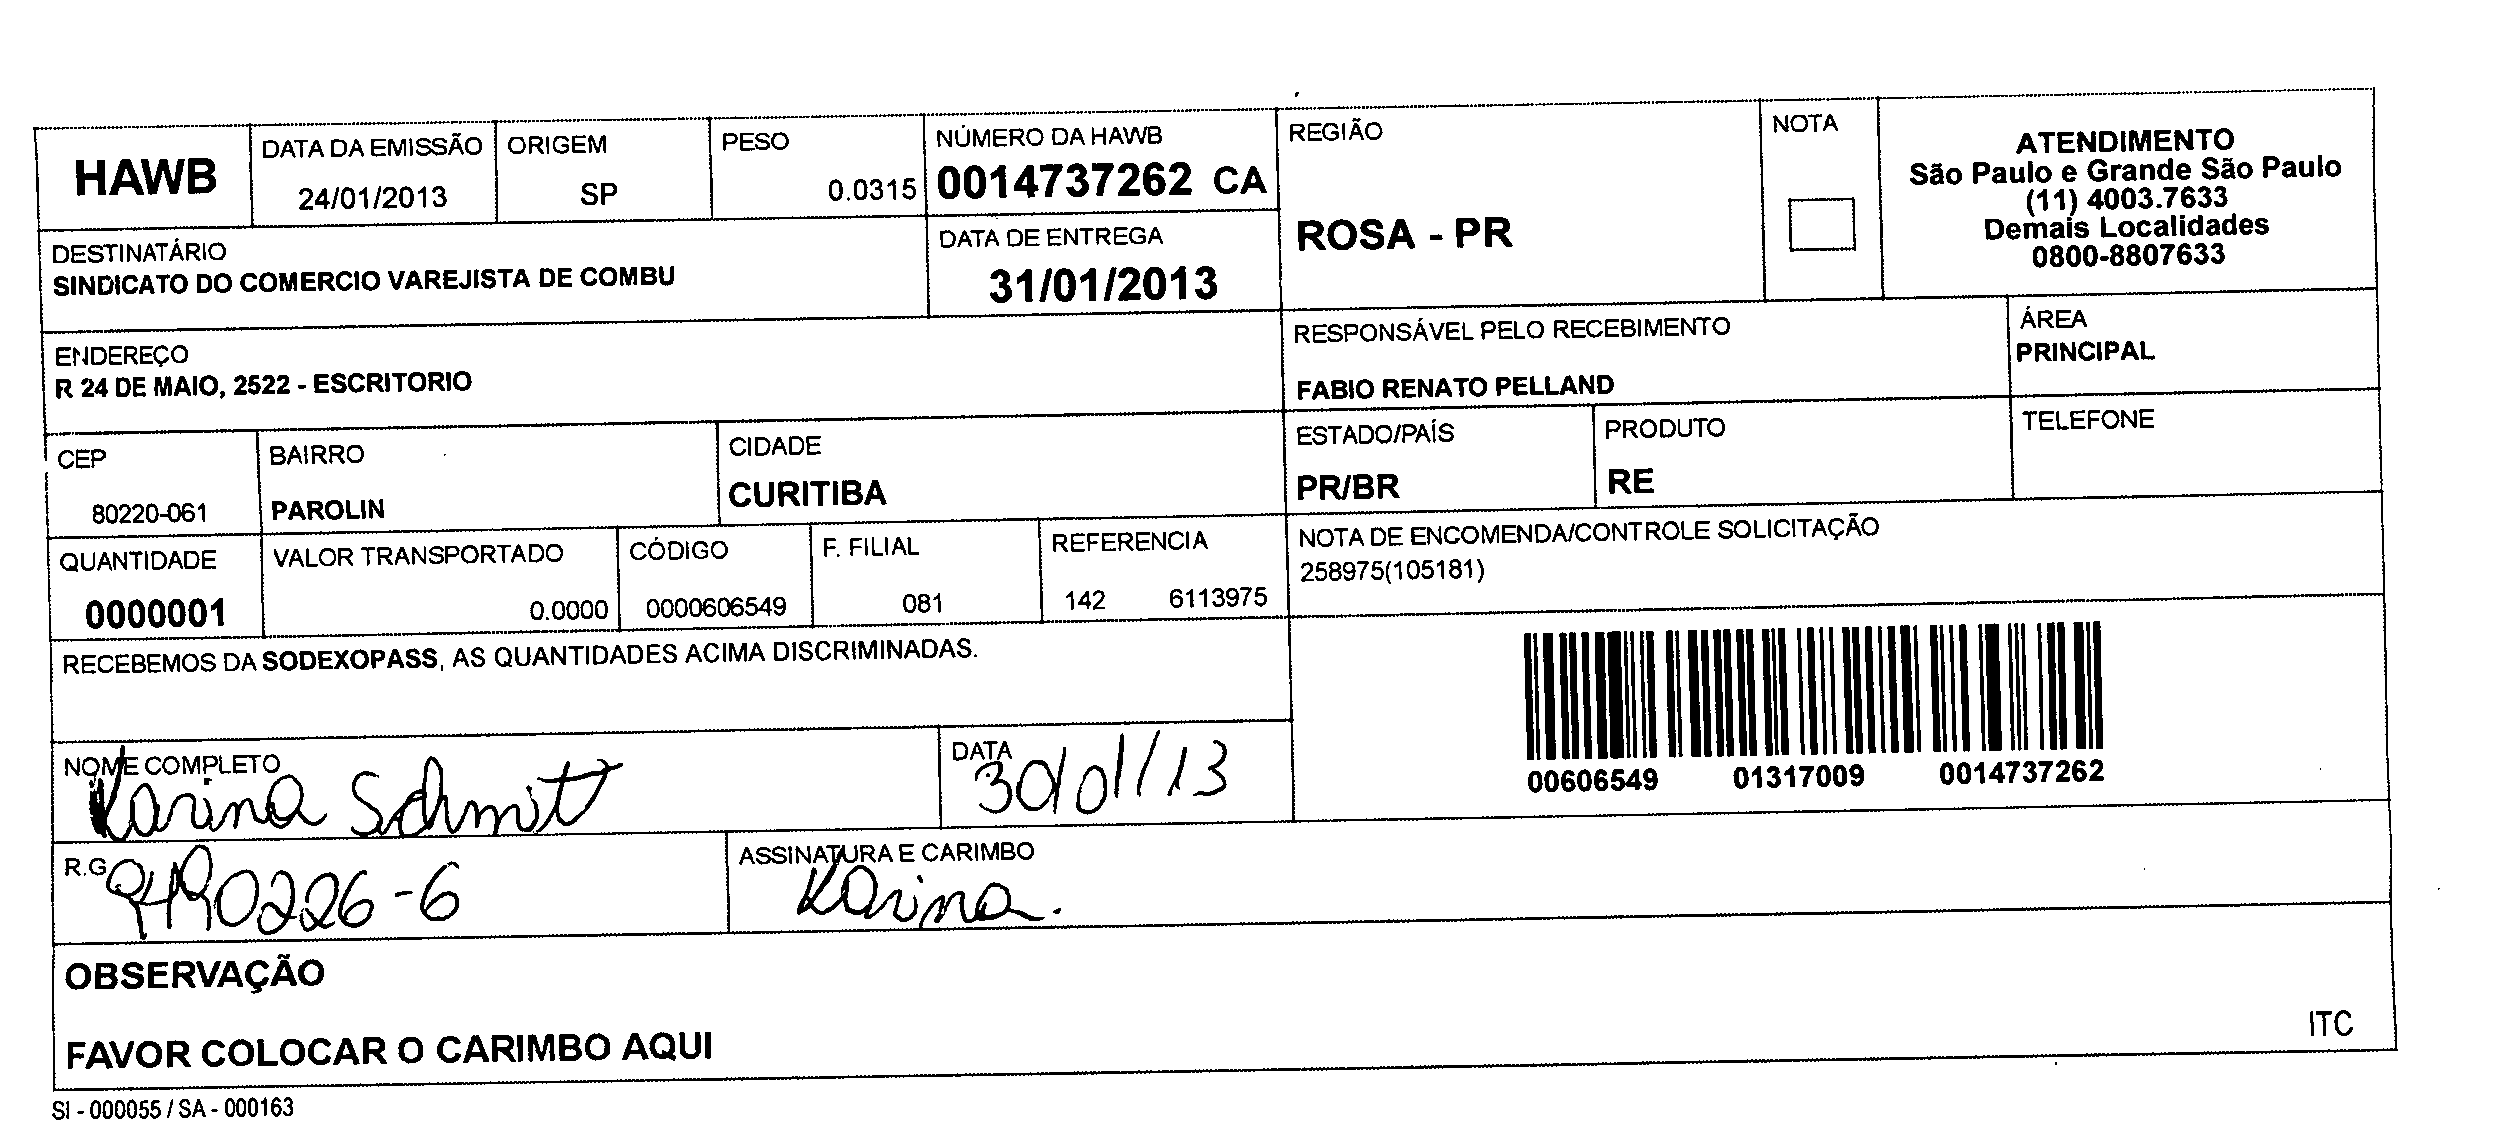 HAWB
DATA DA EMISSÃO
24/01/2013
ORIGEM
SP
PESO
0.0315
NÚMERO DA HAWB
0014737262 CA
REGIÃO
ROSA - PR
NOTA
ATENDIMENTO
São Paulo e Grande São Paulo
(11) 4003.7633
Demais Localidades
0800-8807633
DESTINATÁRIO
SINDICATO DO COMERCIO VAREJISTA DE COMBU
DATA DE ENTREGA
31/01/2013
ENDEREÇO
R 24 DE MAIO, 2522 - ESCRITORIO
RESPONSÁVEL PELO RECEBIMENTO
FABIO RENATO PELLAND
ÁREA
PRINCIPAL
CEP
80220-061
BAIRRO
PAROLIN
CIDADE
CURITIBA
ESTADO/PAÍS
PR/BR
PRODUTO
RE
TELEFONE
QUANTIDADE
0000001
VALOR TRANSPORTADO
0.0000
CÓDIGO
0000606549
F. FILIAL
081
REFERENCIA
142 6113975
NOTA DE ENCOMENDA/CONTROLE SOLICITAÇÃO
258975(105181)
RECEBEMOS DA SODEXOPASS, AS QUANTIDADES ACIMA DISCRIMINADAS.
00606549 01317009 0014737262
NOME COMPLETO
Karina Schmitt
DATA
30/01/13
R.G
ASSINATURA E CARIMBO
Karina.
OBSERVAÇÃO
FAVOR COLOCAR O CARIMBO AQUI
ITC
SI - 000055 / SA - 000163